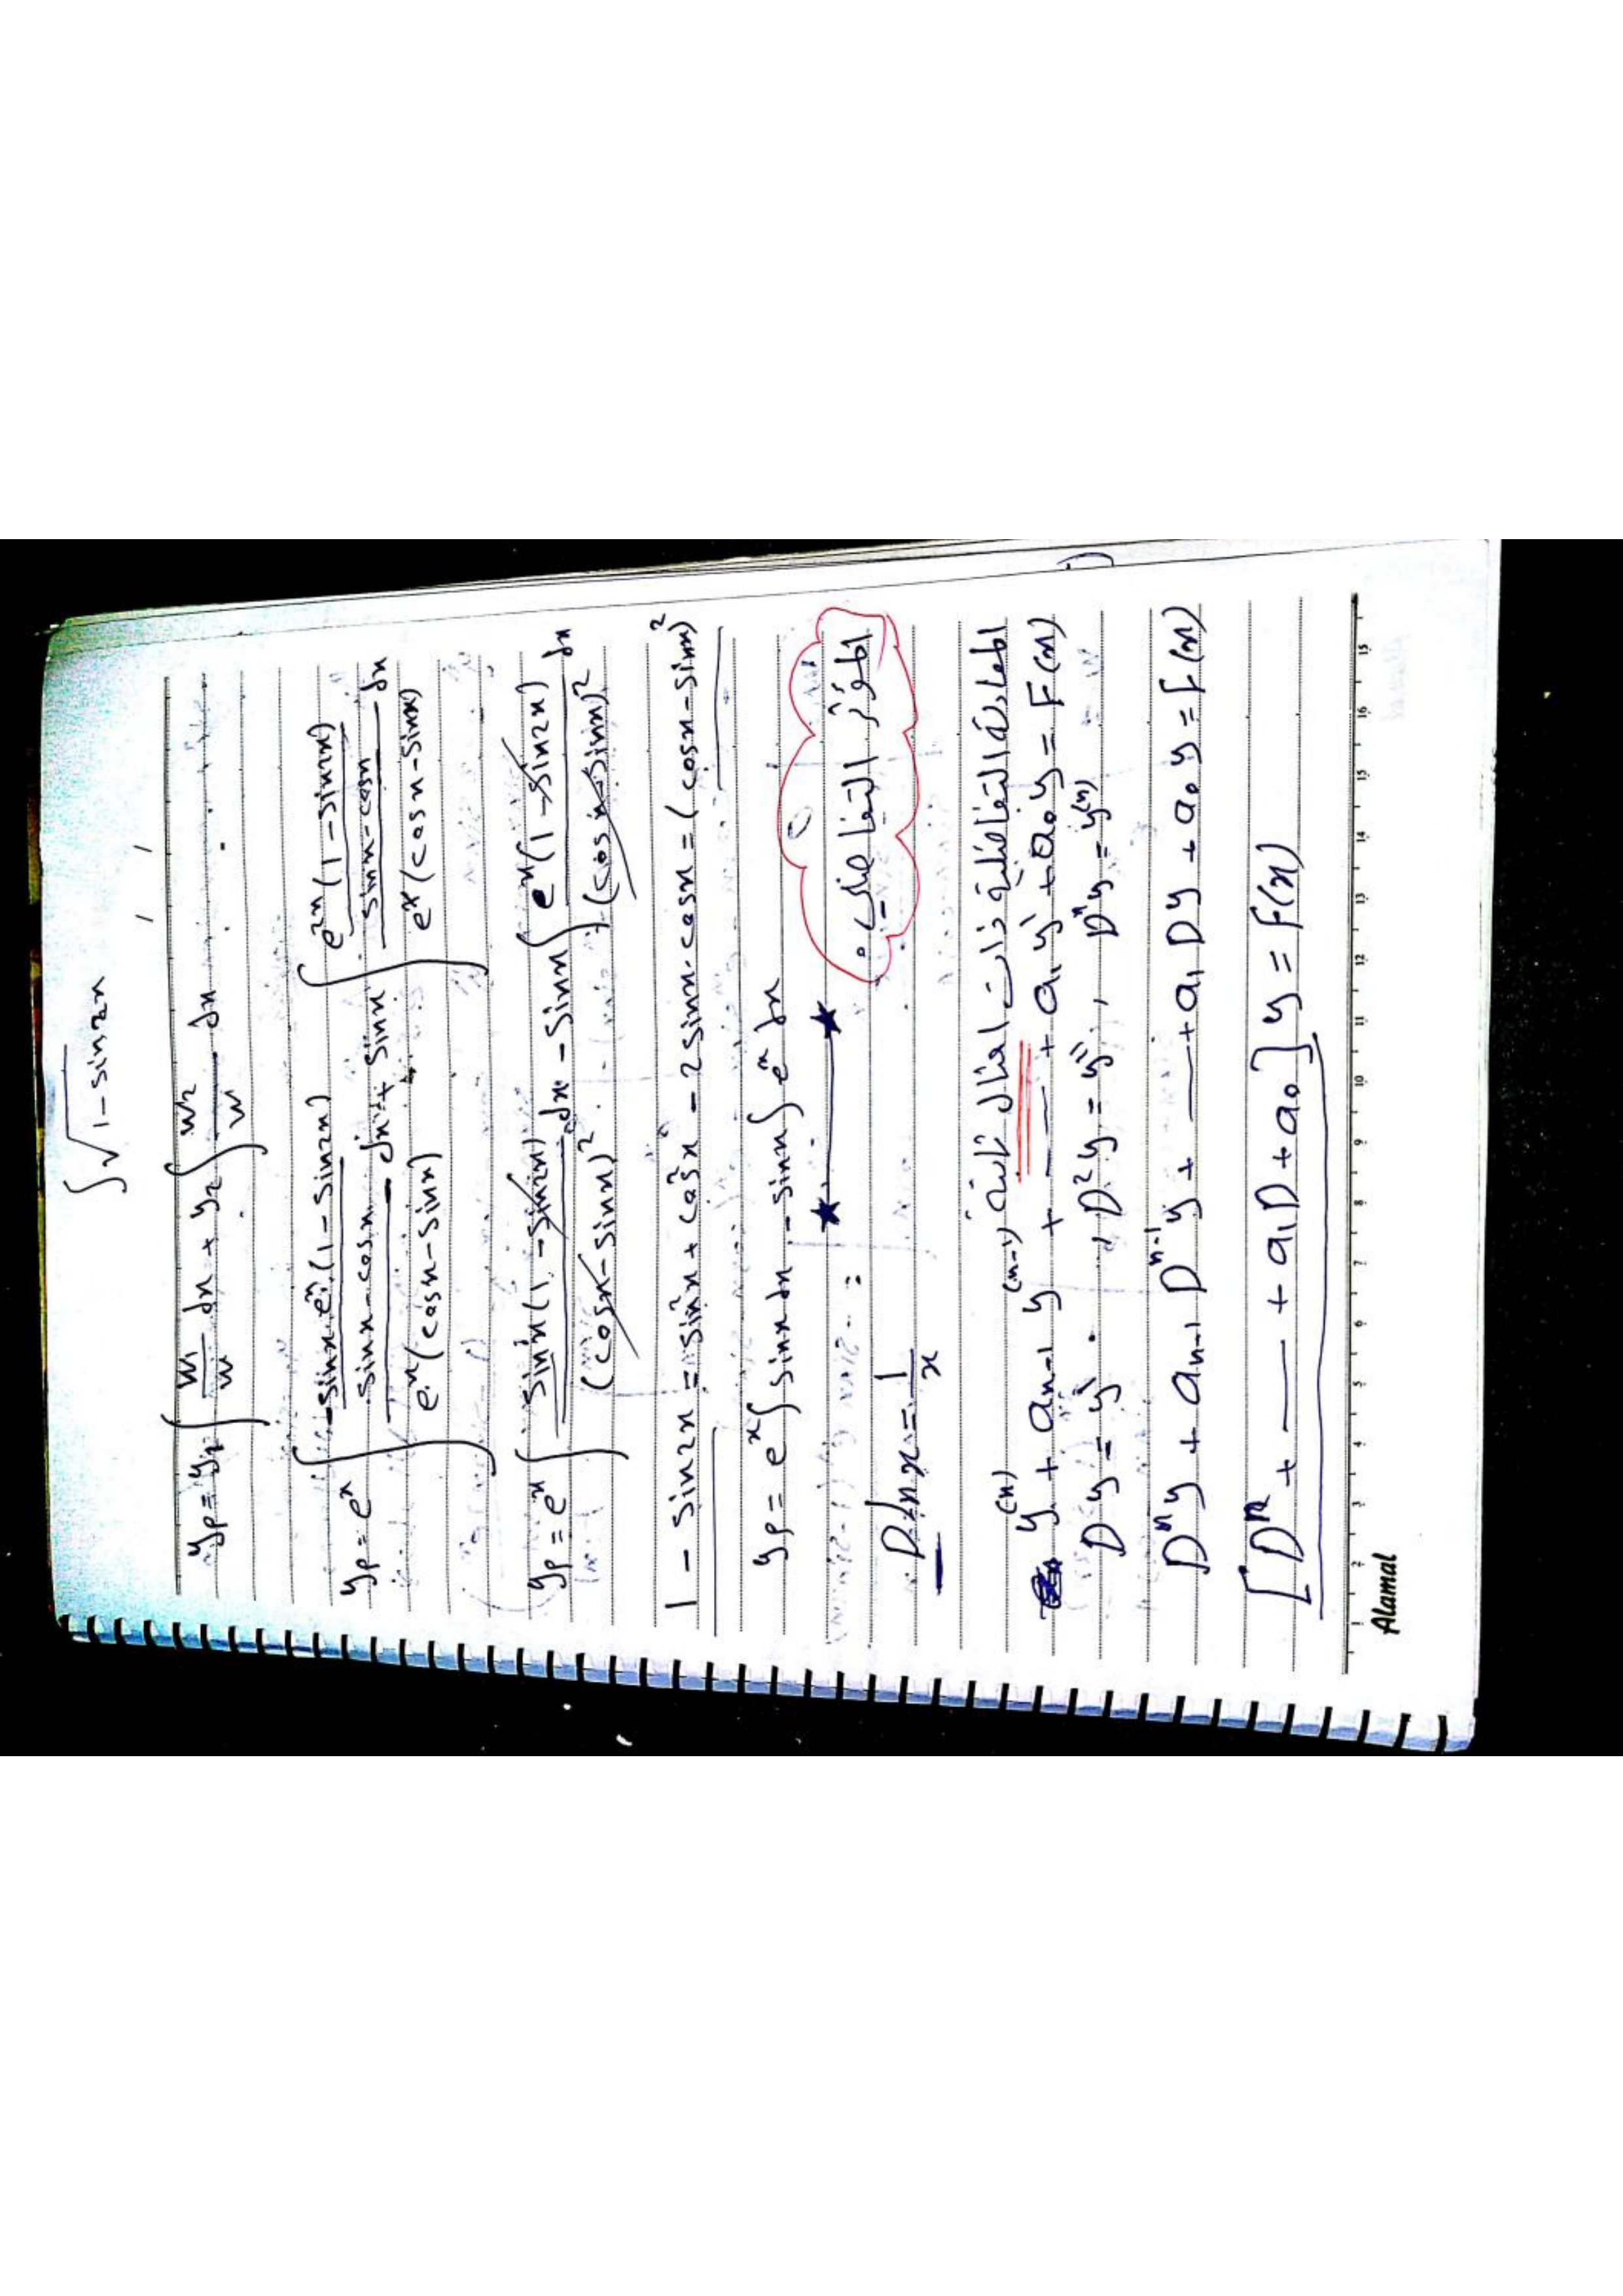 ∫√(1-sin2x)
yp = y1 ∫ w1/w dx + y2 ∫ w2/w dx
yp = e^x ∫ [-sinx·e^x·(1-sin2x) / (sinx-cosx)] / [e^x(cosx-sinx)] dx + sinx ∫ [e^2x(1-sin2x) / (sinx-cosx)] / [e^x(cosx-sinx)] dx
yp = e^x ∫ sinx(1-sin2x) / (cosx-sinx)^2 dx - sinx ∫ e^x(1-sin2x) / (cosx-sinx)^2 dx
1 - sin2x = sin²x + cos²x - 2sinx·cosx = (cosx-sinx)^2
yp = e^x ∫ sinx dx - sinx ∫ e^x dx
★ ★
المؤثر التفاضلي:
D lnx = 1/x
المعادلة التفاضلية ذات امثال ثابتة
y^(n) + a_{n-1} y^(n-1) + — + a_1 y' + a_0 y = F(x)
Dy = y' , D²y = y'' , D^n y = y^(n)
D^n y + a_{n-1} D^{n-1} y + — + a_1 Dy + a_0 y = F(x)
[D^n + — + a_1 D + a_0] y = F(x)
Alamal